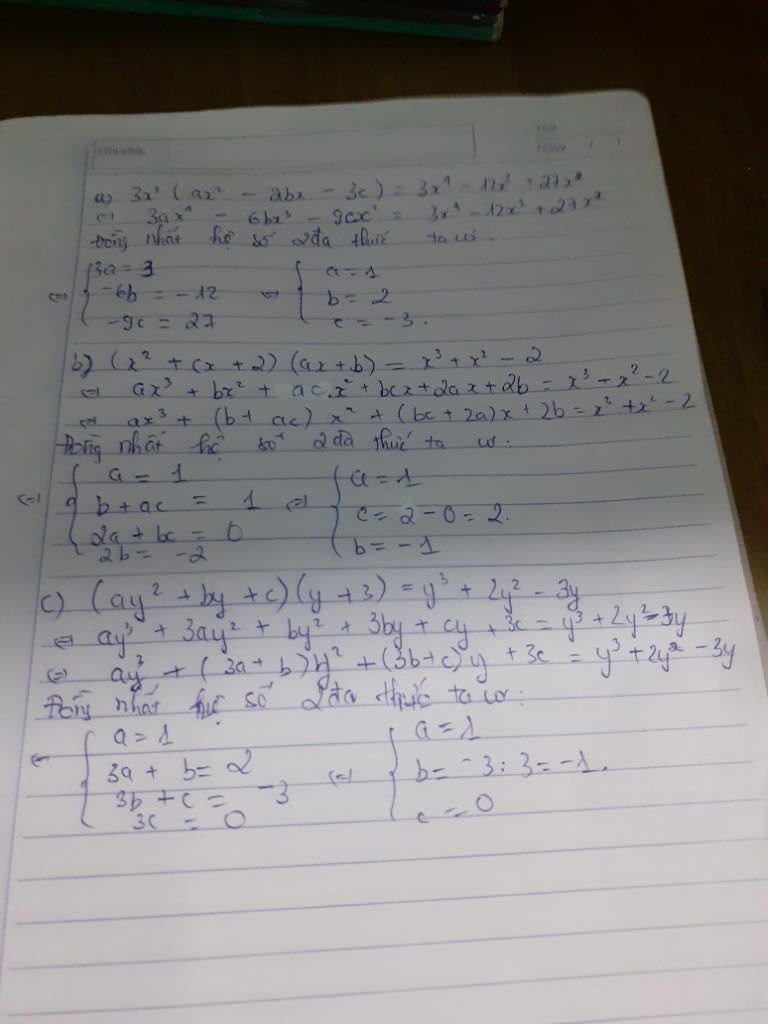 a) 3x² (ax² - 2bx - 3c) = 3x⁴ - 12x³ + 27x²
⇔ 3ax⁴ - 6bx³ - 9cx² = 3x⁴ - 12x³ + 27x²
Đồng nhất hệ số 2 đa thức ta có:
⇔ { 3a = 3 ⇔ { a = 1
-6b = -12 b = 2
-9c = 27 c = -3.
b) (x² + cx + 2) (ax + b) = x³ + x² - 2
⇔ ax³ + bx² + acx² + bcx + 2ax + 2b = x³ + x² - 2
⇔ ax³ + (b + ac) x² + (bc + 2a)x + 2b = x³ + x² - 2
Đồng nhất hệ số 2 đa thức ta có:
⇔ { a = 1 ⇔ { a = 1
b + ac = 1 c = 2 - 0 = 2.
2a + bc = 0
2b = -2 b = -1
c) (ay² + by + c)(y + 3) = y³ + 2y² - 3y
⇔ ay³ + 3ay² + by² + 3by + cy + 3c = y³ + 2y² - 3y
⇔ ay³ + (3a + b)y² + (3b + c)y + 3c = y³ + 2y² - 3y
Đồng nhất hệ số 2 đa thức ta có:
⇔ { a = 1 ⇔ { a = 1
3a + b = 2 b = -3 : 3 = -1.
3b + c = -3
3c = 0 c = 0